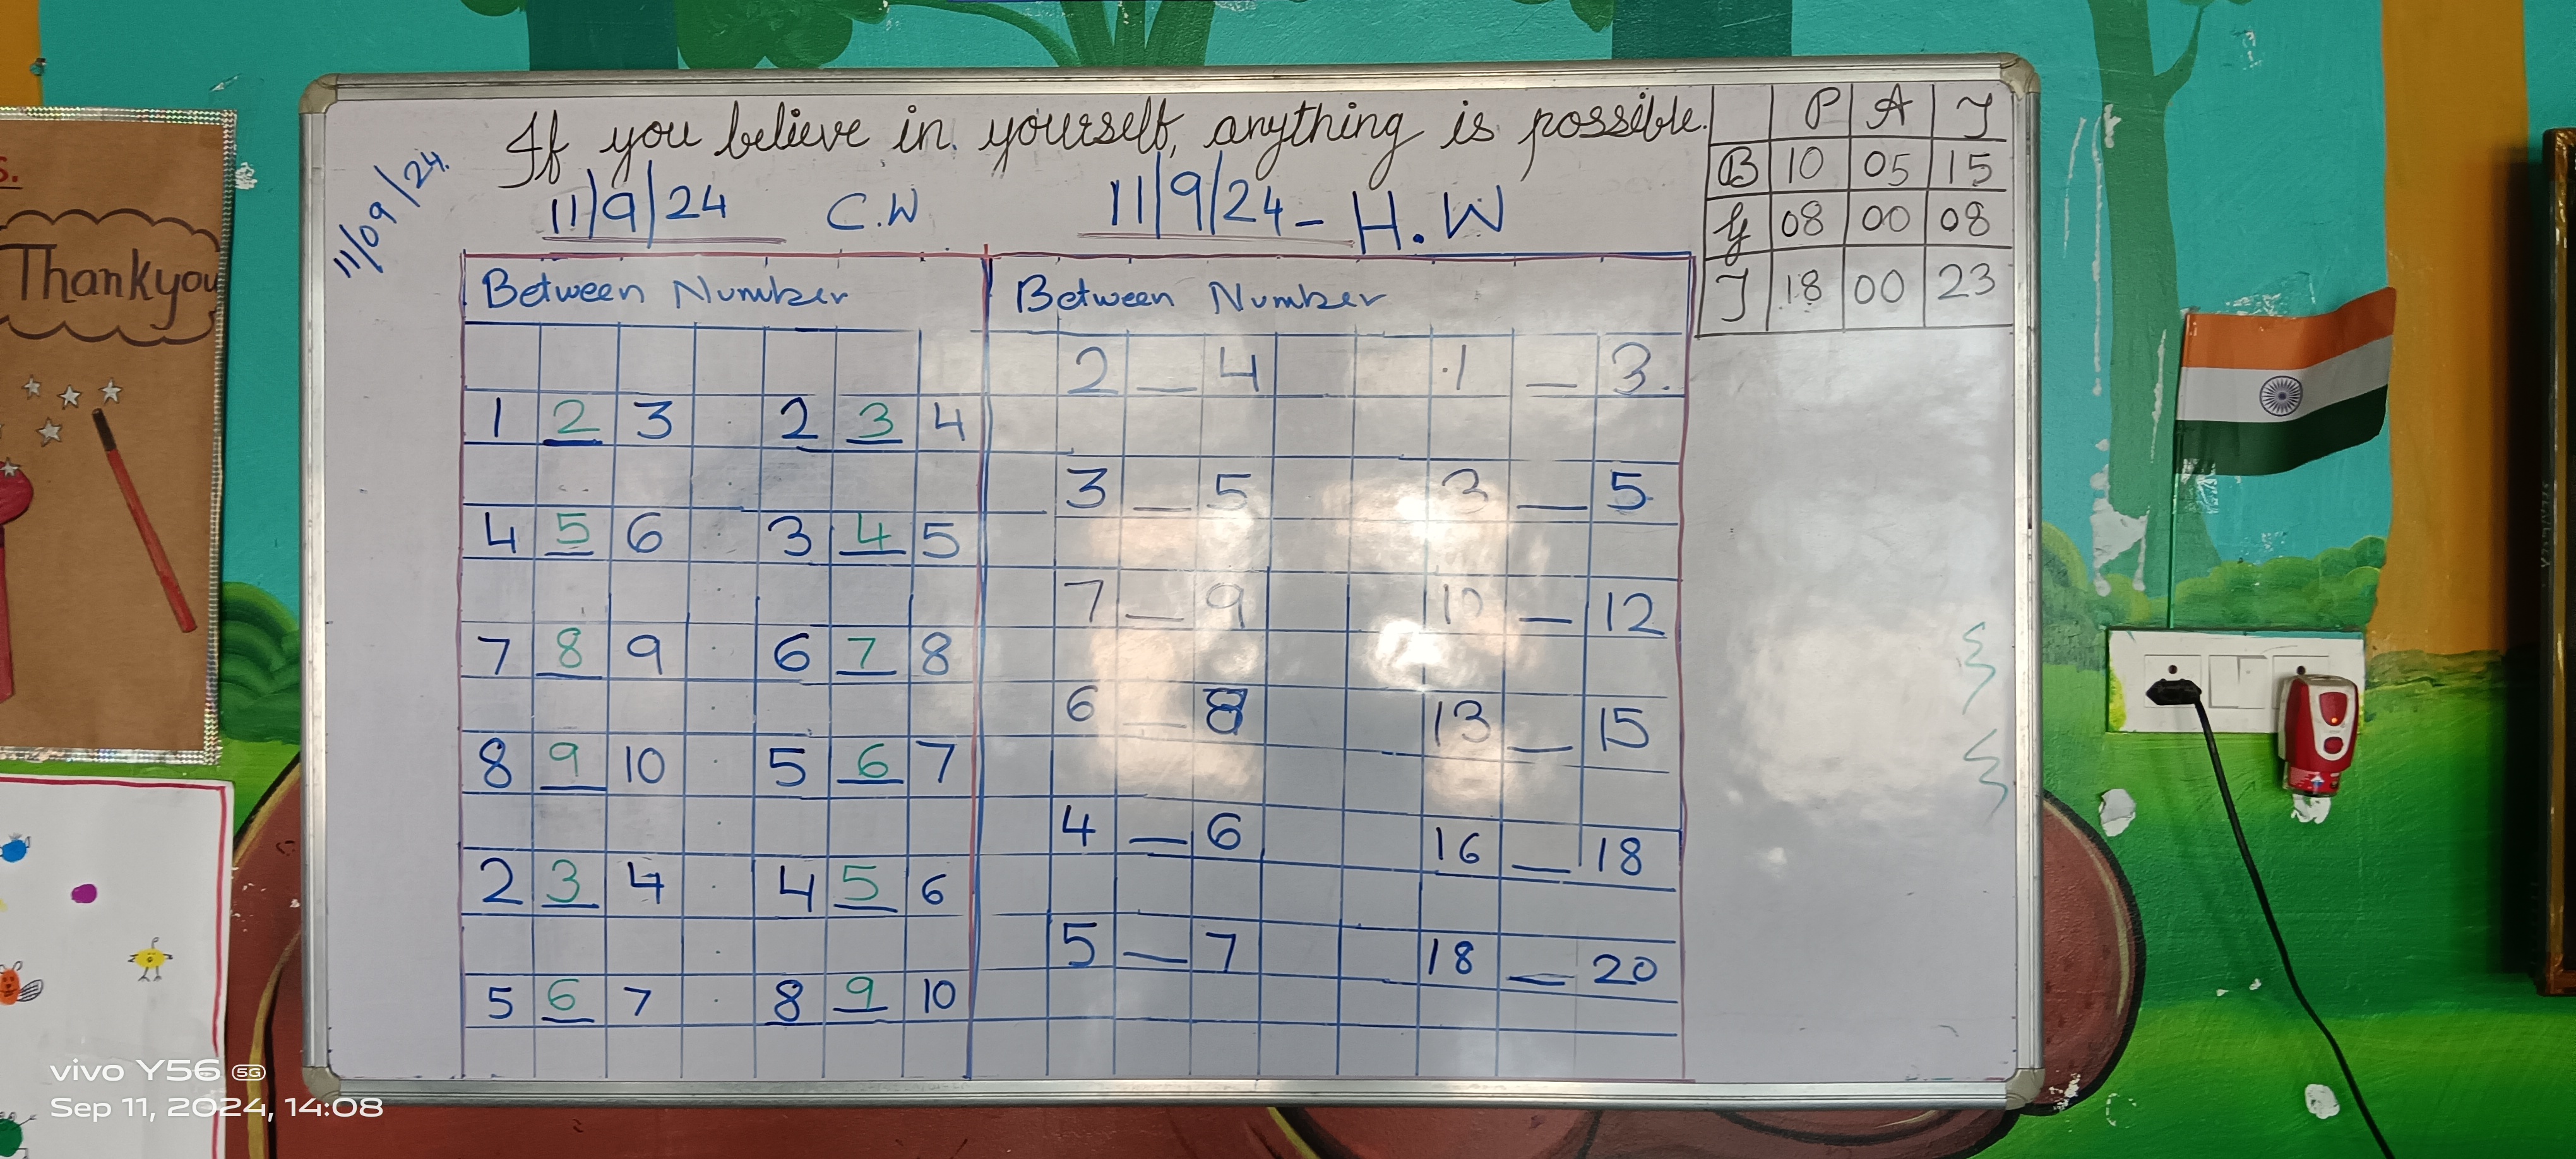 If you believe in yourself, anything is possible.
11/09/24.
11/9/24 C.W
11/9/24 - H.W
P A T
B 10 05 15
G 08 00 08
T 18 00 23
Between Number
1 2 3 2 3 4
4 5 6 3 4 5
7 8 9 6 7 8
8 9 10 5 6 7
2 3 4 4 5 6
5 6 7 8 9 10
Between Number
2 _ 4 1 _ 3.
3 _ 5 3 _ 5
7 _ 9 10 _ 12
6 _ 8 13 _ 15
4 _ 6 16 _ 18
5 _ 7 18 _ 20
Thankyou
vivo Y56 5G
Sep 11, 2024, 14:08